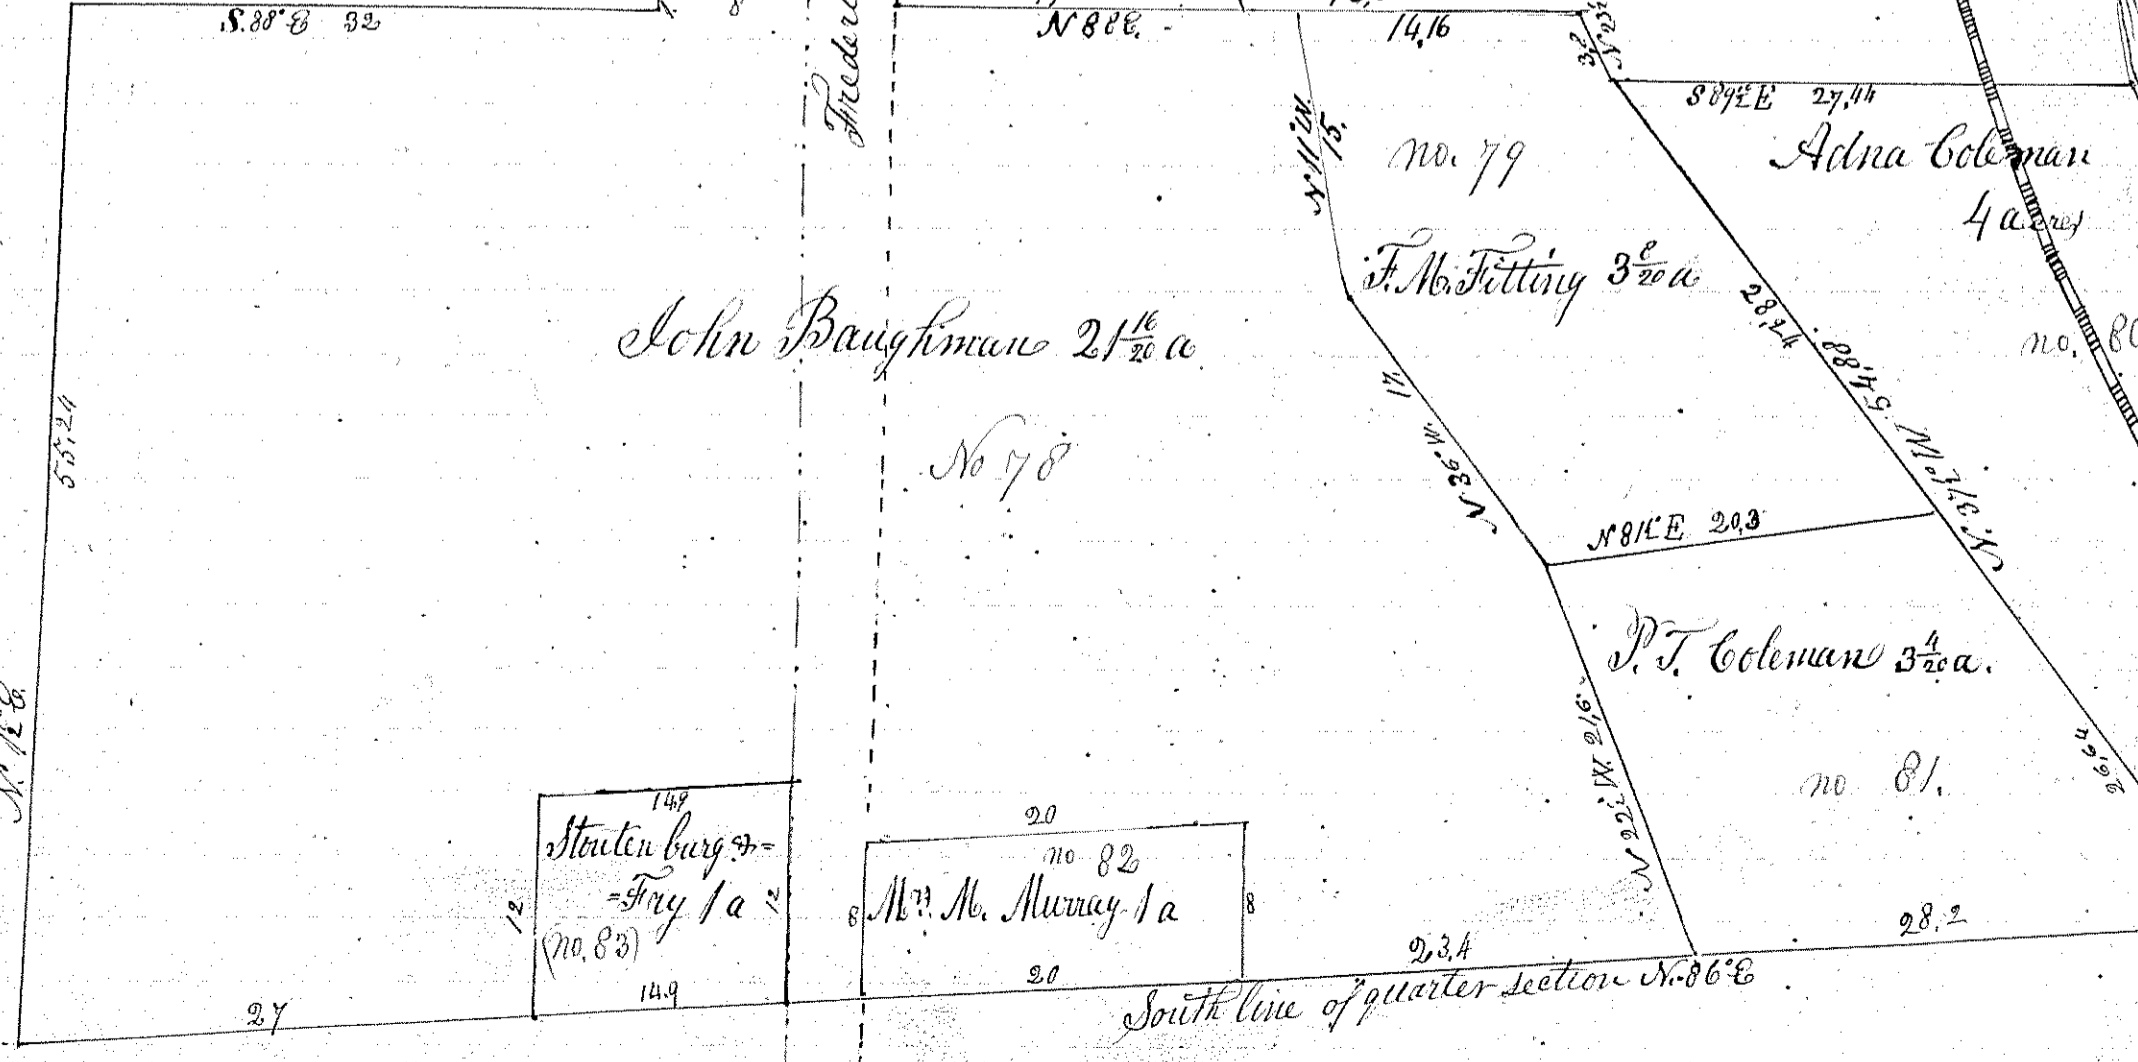 S. 88° E 32
8
N 88 E.
14,16
S 89½ E 27,44
Adna Coleman
4 acres
no. 80
N 11° W.
15.
no. 79
F. M. Fitting 3 8/20 a
28,24
54,88
N. 37½° W
John Baughman 21 16/20 a
No 78
55,24
17.
N 36° W.
N 81½° E 20,3
P. T. Coleman 3 4/20 a.
no 81.
26,64
N 22° W. 21,6
14.9
Stoutenburg &=
=Fry 1 a
(no. 83)
12
12
14.9
20
no 82
M. Murray 1 a
8
8
20
27
23.4
28.2
South line of quarter section N. 86° E